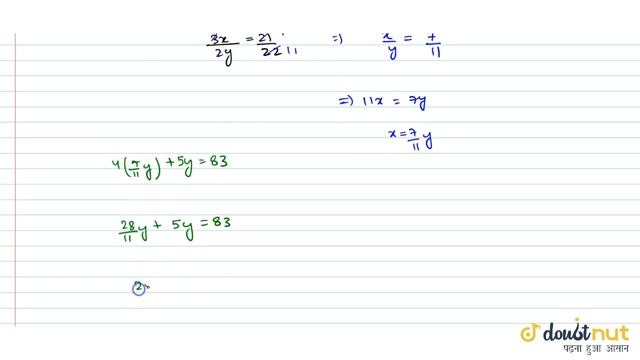 3x/2y = 21/22 11 ⇒ x/y = 7/11
⇒ 11x = 7y
x = 7/11 y
4(7/11 y) + 5y = 83
28/11 y + 5y = 83
2
doubtnut
पढ़ना हुआ आसान